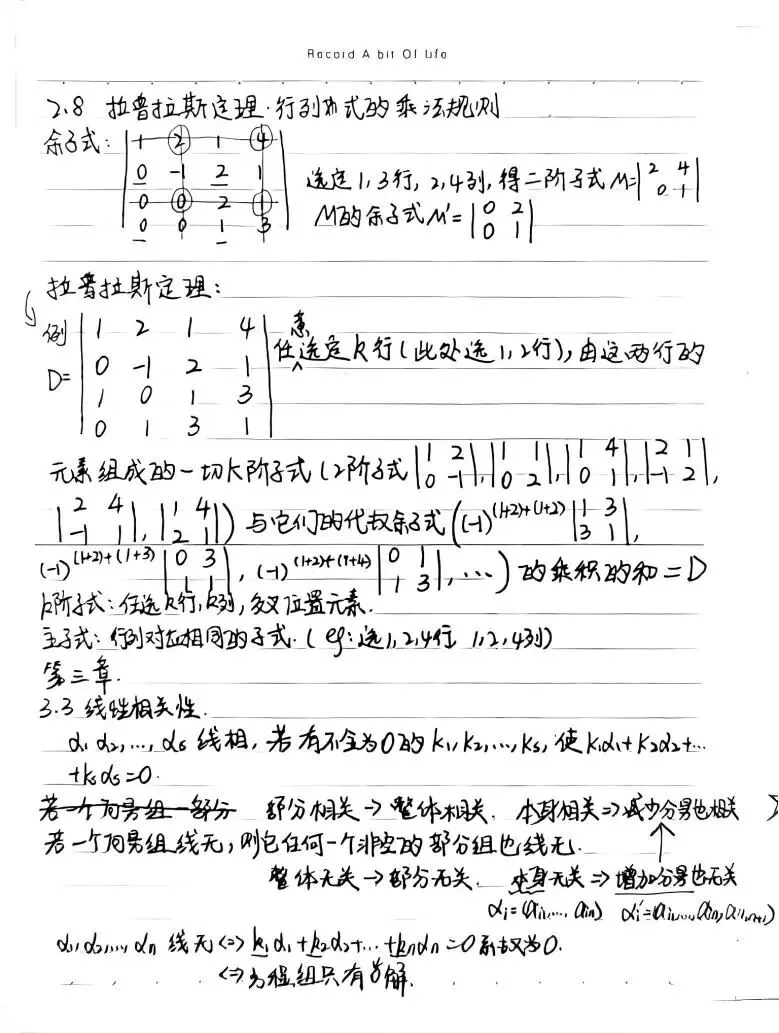 Record A bit Of Life
2.8 拉普拉斯定理·行列式的乘法规则
余子式: | 1 2 1 4 |
| 0 -1 2 1 | 选定1,3行, 2,4列, 得二阶子式 M=| 2 4 |
| 0 0 2 1 | | 0 1 |
| 0 0 1 3 | M的余子式M'=| 0 2 |
| 0 1 |
拉普拉斯定理:
例 | 1 2 1 4 |
D= | 0 -1 2 1 | 任意选定k行(此处选1,2行), 由这两行的
| 1 0 1 3 |
| 0 1 3 1 |
元素组成的一切k阶子式(2阶子式 |1 2; 0 -1|, |1 1; 0 2|, |1 4; 0 1|, |2 1; -1 2|,
|2 4; -1 1|, |1 4; 2 1|) 与它们的代数余子式((-1)^(1+2)+(1+2) |1 3; 3 1|,
(-1)^(1+2)+(1+3) |0 3; 1 1|, (-1)^(1+2)+(1+4) |0 1; 1 3|, …) 的乘积的和=D
k阶子式:任选k行,k列,交叉位置元素.
主子式:行列对应相同的子式.(eg:选1,2,4行 1,2,4列)
第三章.
3.3 线性相关性.
α₁ α₂,…, αs 线相, 若有不全为0的k₁,k₂,…,ks, 使k₁α₁+k₂α₂+…
+ksαs=0.
若一个向量组一部分 部分相关→整体相关. 本身相关⇒减少分量也相关
若一个向量组线无,则它任何一个非空的部分组也线无.
整体无关→部分无关. 本身无关⇒增加分量也无关
αi=(ai1,…,ain) αi'=(ai1,…,ain,ai,n+1)
α₁,α₂,…,αn 线无⇔k₁α₁+k₂α₂+…+knαn=0系数为0.
⇔方程组只有零解.